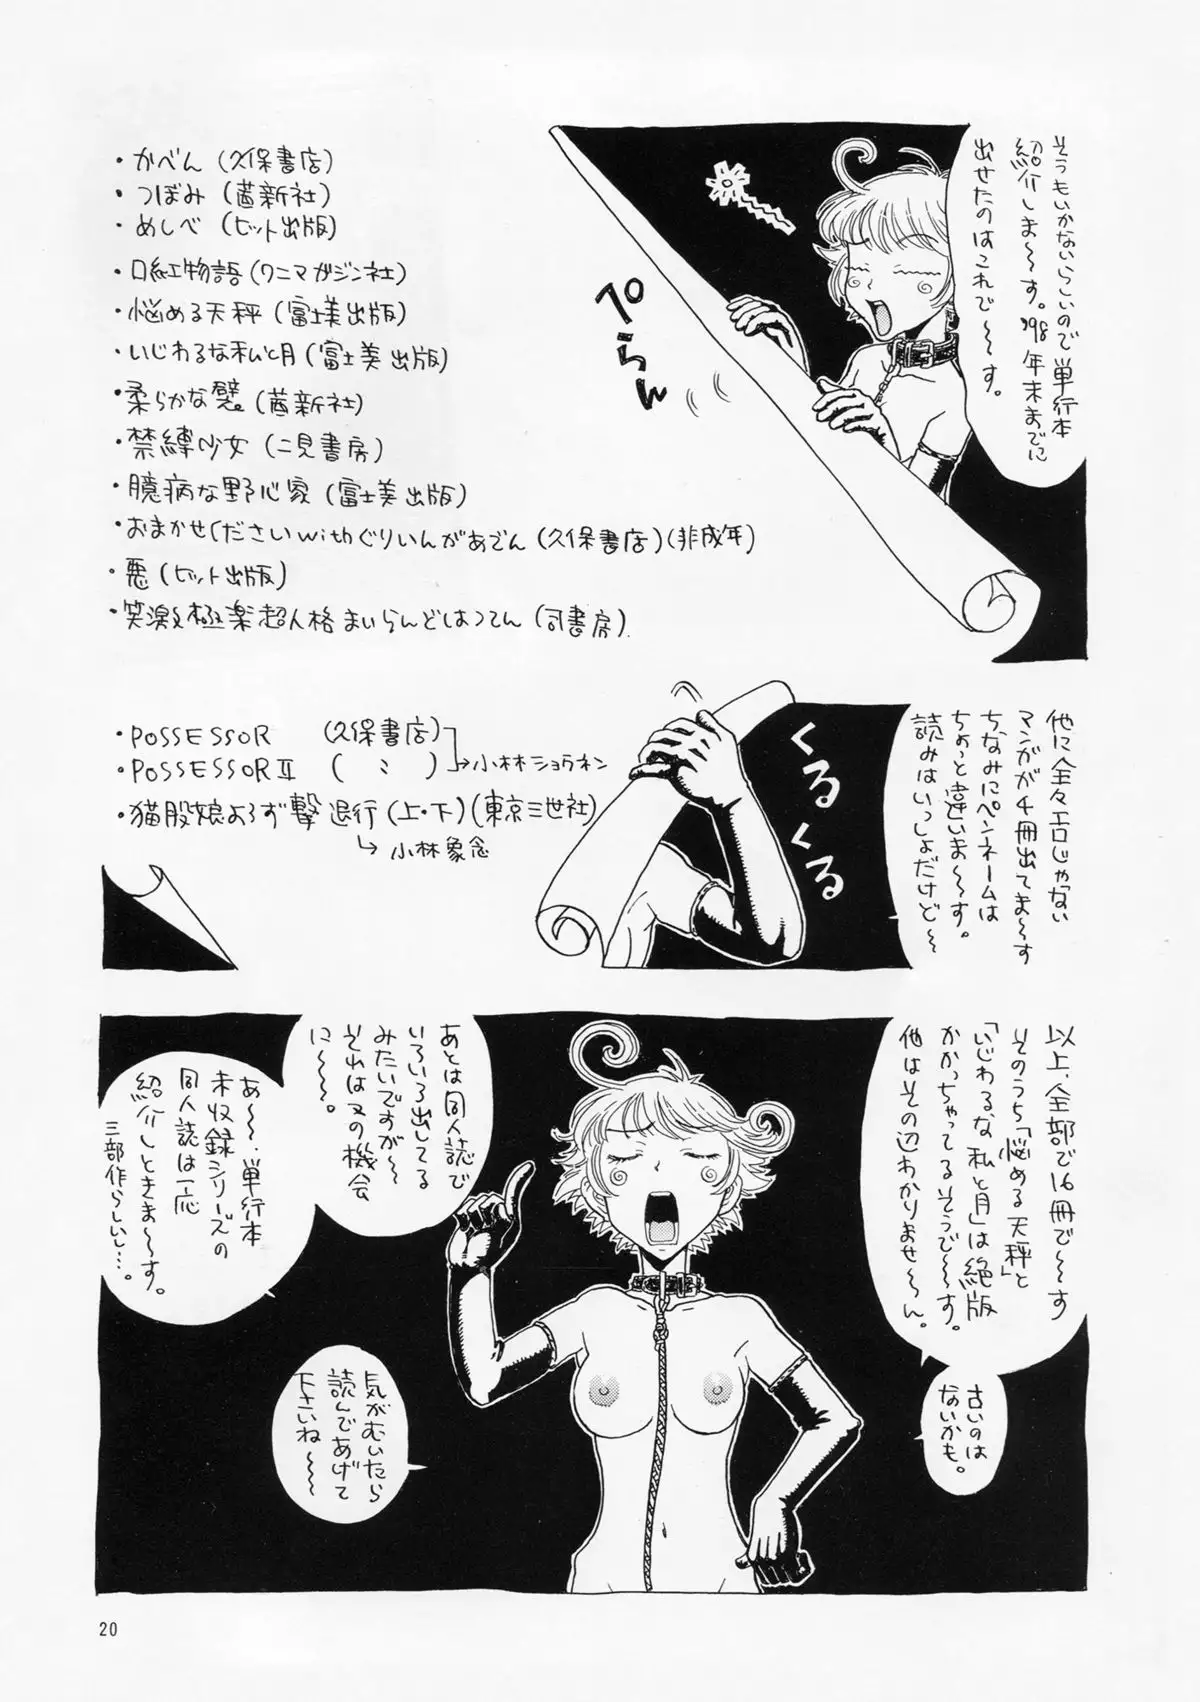 そうもいかないらしいので単行本
紹介しま〜〜す。'98年末までに
出せたのはこれで〜〜す。
ぺらん
・かべん(久保書店)
・つぼみ(茜新社)
・めしべ(ヒット出版)
・口紅物語(ワニマガジン社)
・悩める天秤(富士美出版)
・いじわるな私と月(富士美出版)
・柔らかな襞。(茜新社)
・禁縛少女(二見書房)
・臆病な野心家(富士美出版)
・おまかせくださいwithぐりいんがあでん(久保書店)(非成年)
・悪(ヒット出版)
・笑激極楽超人格まいらんどはつでん(司書房)
他に全々エロじゃない
マンガが4冊出てま〜〜す
ちなみにペンネームは
ちょっと違いま〜〜す。
読みはいっしょだけど〜
くるくる
・POSSESSOR (久保書店)
・POSSESSORⅡ ( 〃 )→小林ショウネン
・猫股娘よろず撃退行(上・下)(東京三世社)
→小林象念
以上、全部で16冊で〜〜す
そのうち「悩める天秤」と
「いじわるな私と月」は絶版
かかっちゃってるそうで〜〜す。
他はその辺わかりませ〜ん。
古いのは
ないかも。
あとは同人誌で
いろいろ出してる
みたいですが〜
それは又の機会
に〜〜〜。
あ〜〜、単行本
未収録シリーズの
同人誌は一応
紹介しときま〜〜す。
三部作らしいし…。
気がむいたら
読んであげて
下さいね〜〜〜
20